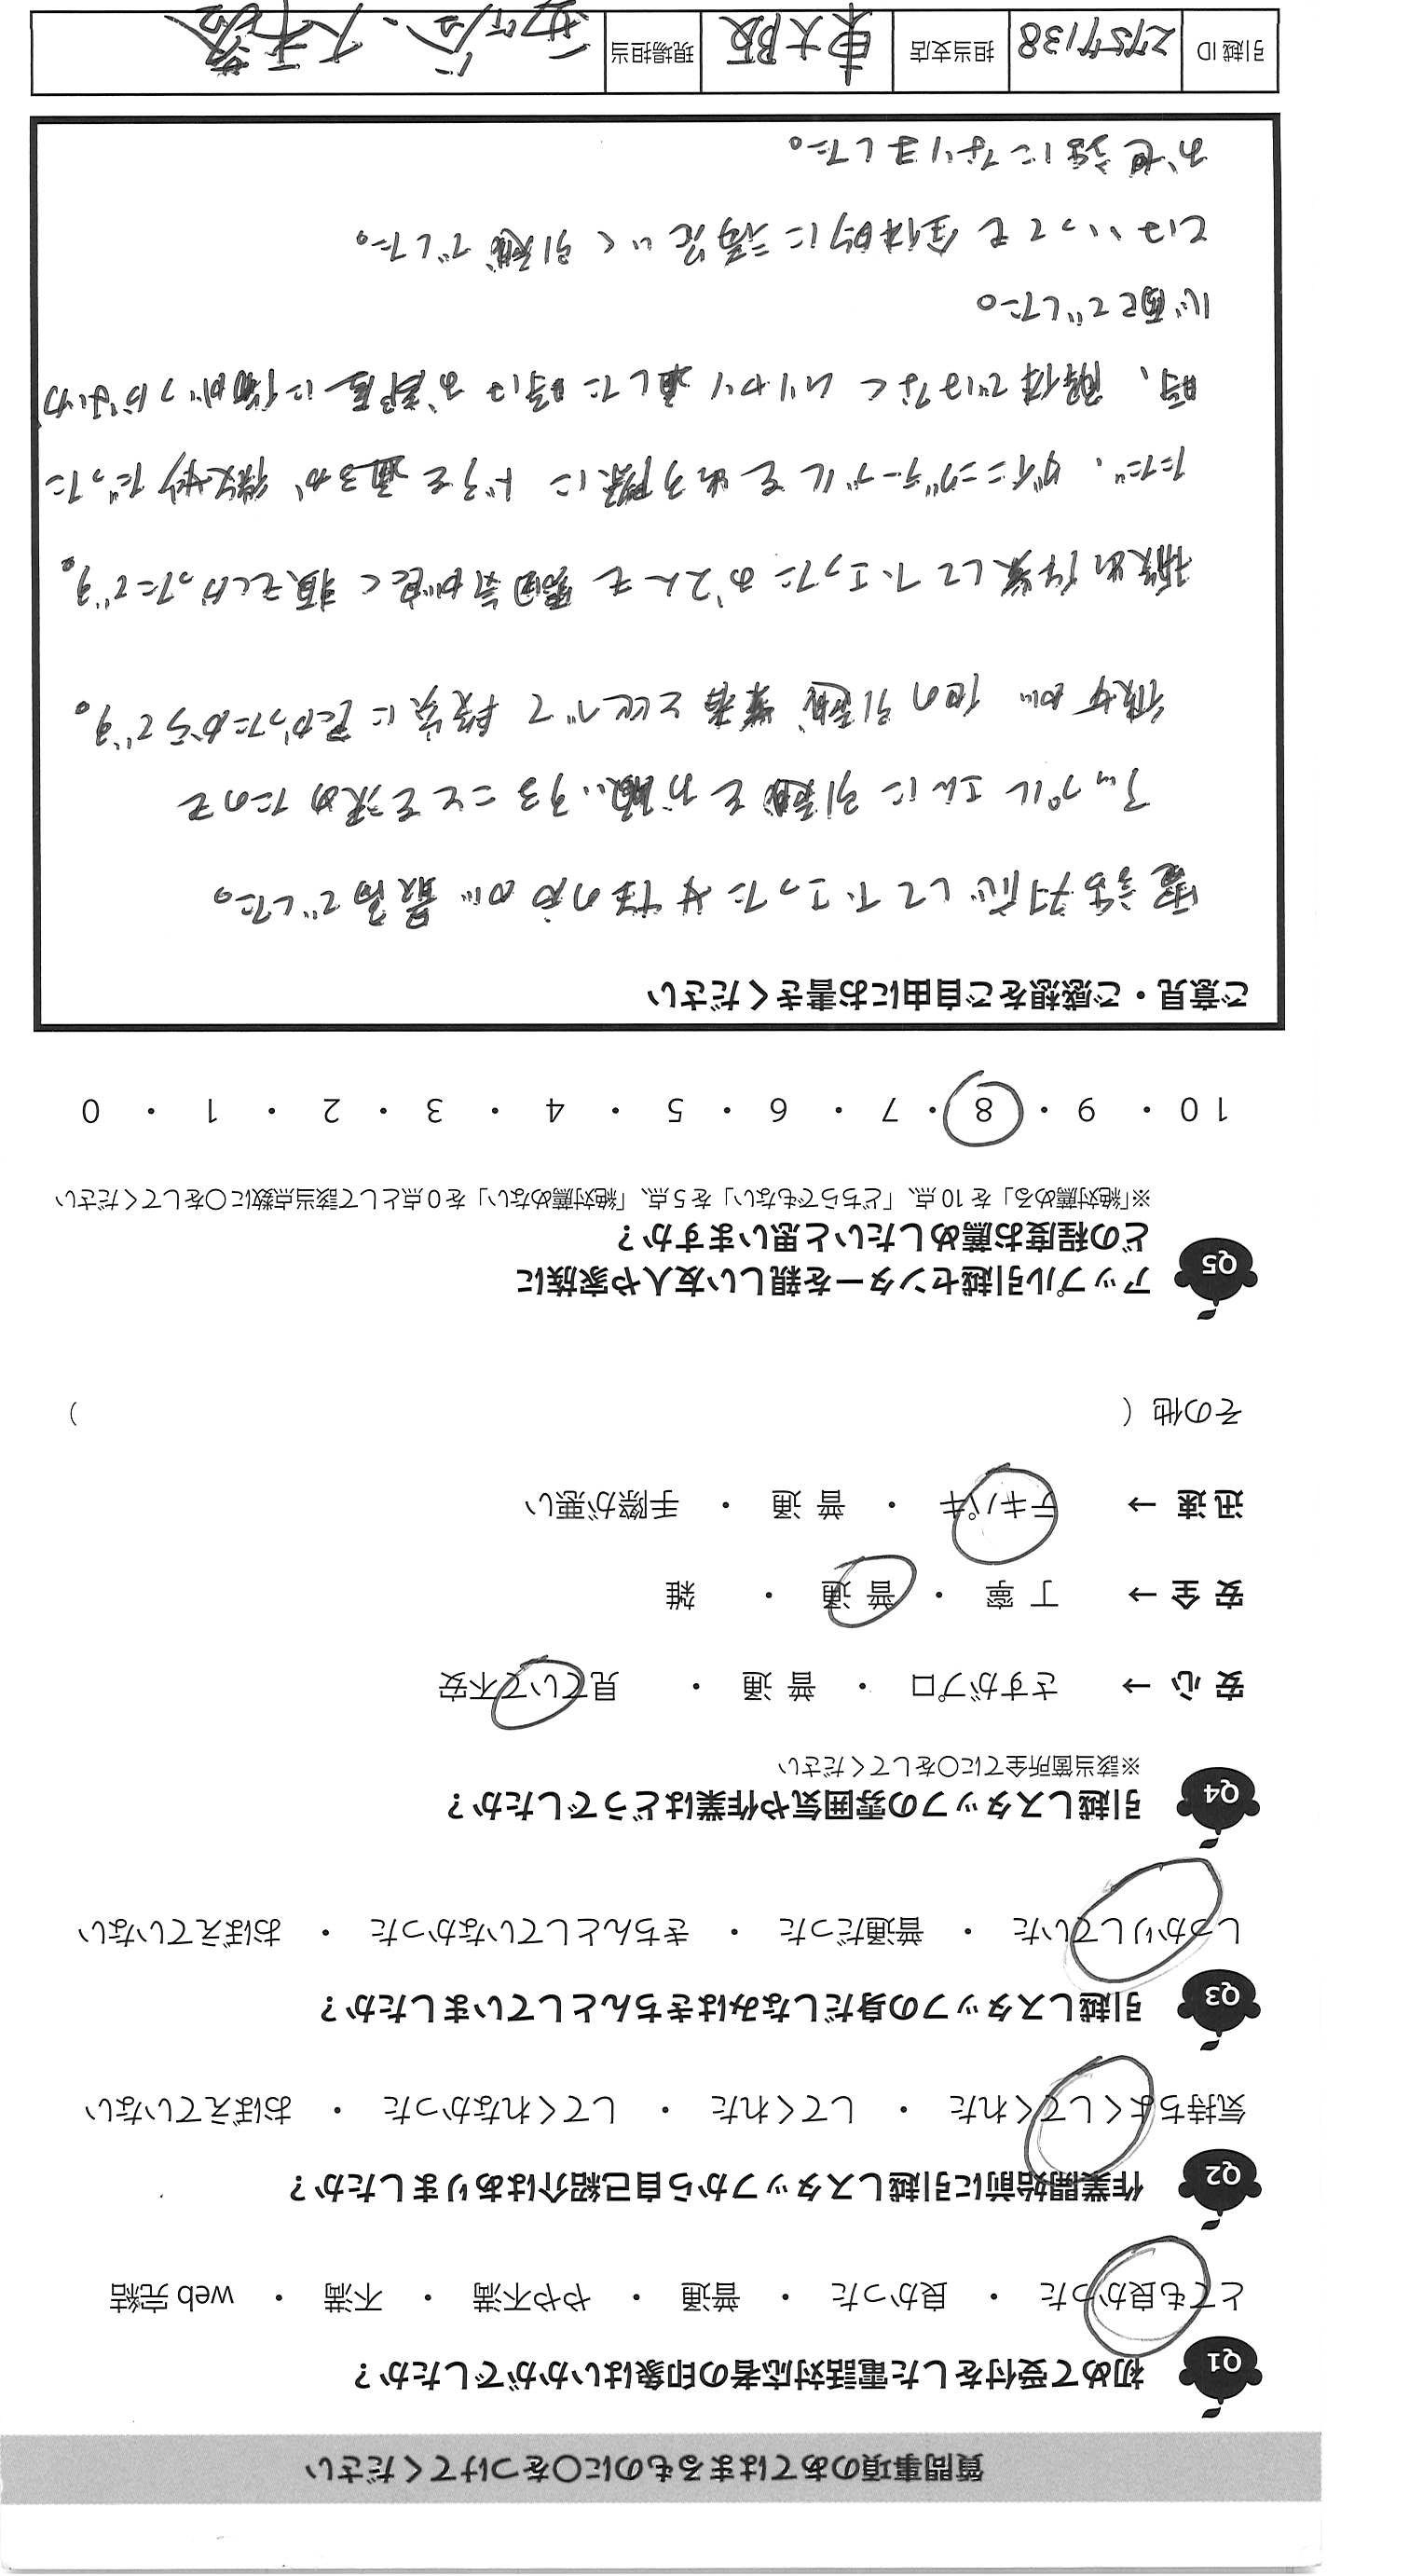 質問事項のあてはまるものに○をつけてください
Q1 初めて受付をした電話対応者の印象はいかがでしたか？
とても良かった ・ 良かった ・ 普通 ・ やや不満 ・ 不満 ・ web 完結
Q2 作業開始前に引越しスタッフから自己紹介はありましたか？
気持ちよくしてくれた ・ してくれた ・ してくれなかった ・ おぼえていない
Q3 引越しスタッフの身だしなみはきちんとしていましたか？
しっかりしていた ・ 普通だった ・ きちんとしていなかった ・ おぼえていない
Q4 引越しスタッフの雰囲気や作業はどうでしたか？
※該当箇所全てに○をしてください
安 心 → さすがプロ ・ 普 通 ・ 見ていて不安
安 全 → 丁 寧 ・ 普 通 ・ 雑
迅 速 → テキパキ ・ 普 通 ・ 手際が悪い
その他（ ）
Q5 アップル引越センターを親しい友人や家族に
どの程度お薦めしたいと思いますか？
※「絶対薦める」を 10 点、「どちらでもない」を 5 点、「絶対薦めない」を 0 点として該当点数に○をしてください
10 ・ 9 ・ 8 ・ 7 ・ 6 ・ 5 ・ 4 ・ 3 ・ 2 ・ 1 ・ 0
ご意見・ご感想をご自由にお書きください
電話対応して下さった女性の方が最高でした。
アップルさんに引越をお願いすることを決めたのも
彼女が他の引越業者と比べて段突に良かったからです。
搬出作業して下さったお2人も雰囲気が良く頼もしかったです。
ただ、ダイニングテーブルを出す際にドアを通るか微妙だった
時、解体ではなくムリヤリ通した時はお部屋に傷がつかないか
心配でした。
とはいっても全体的に満足いく引越でした。
お世話になりました。
引越 ID 27571138 担当支店 東大阪 現場担当